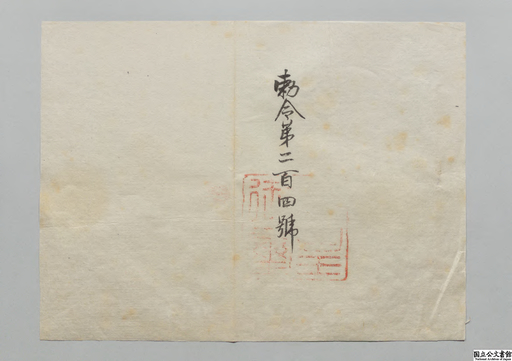 勅令第二百四號
国立公文書館
National Archives of Japan